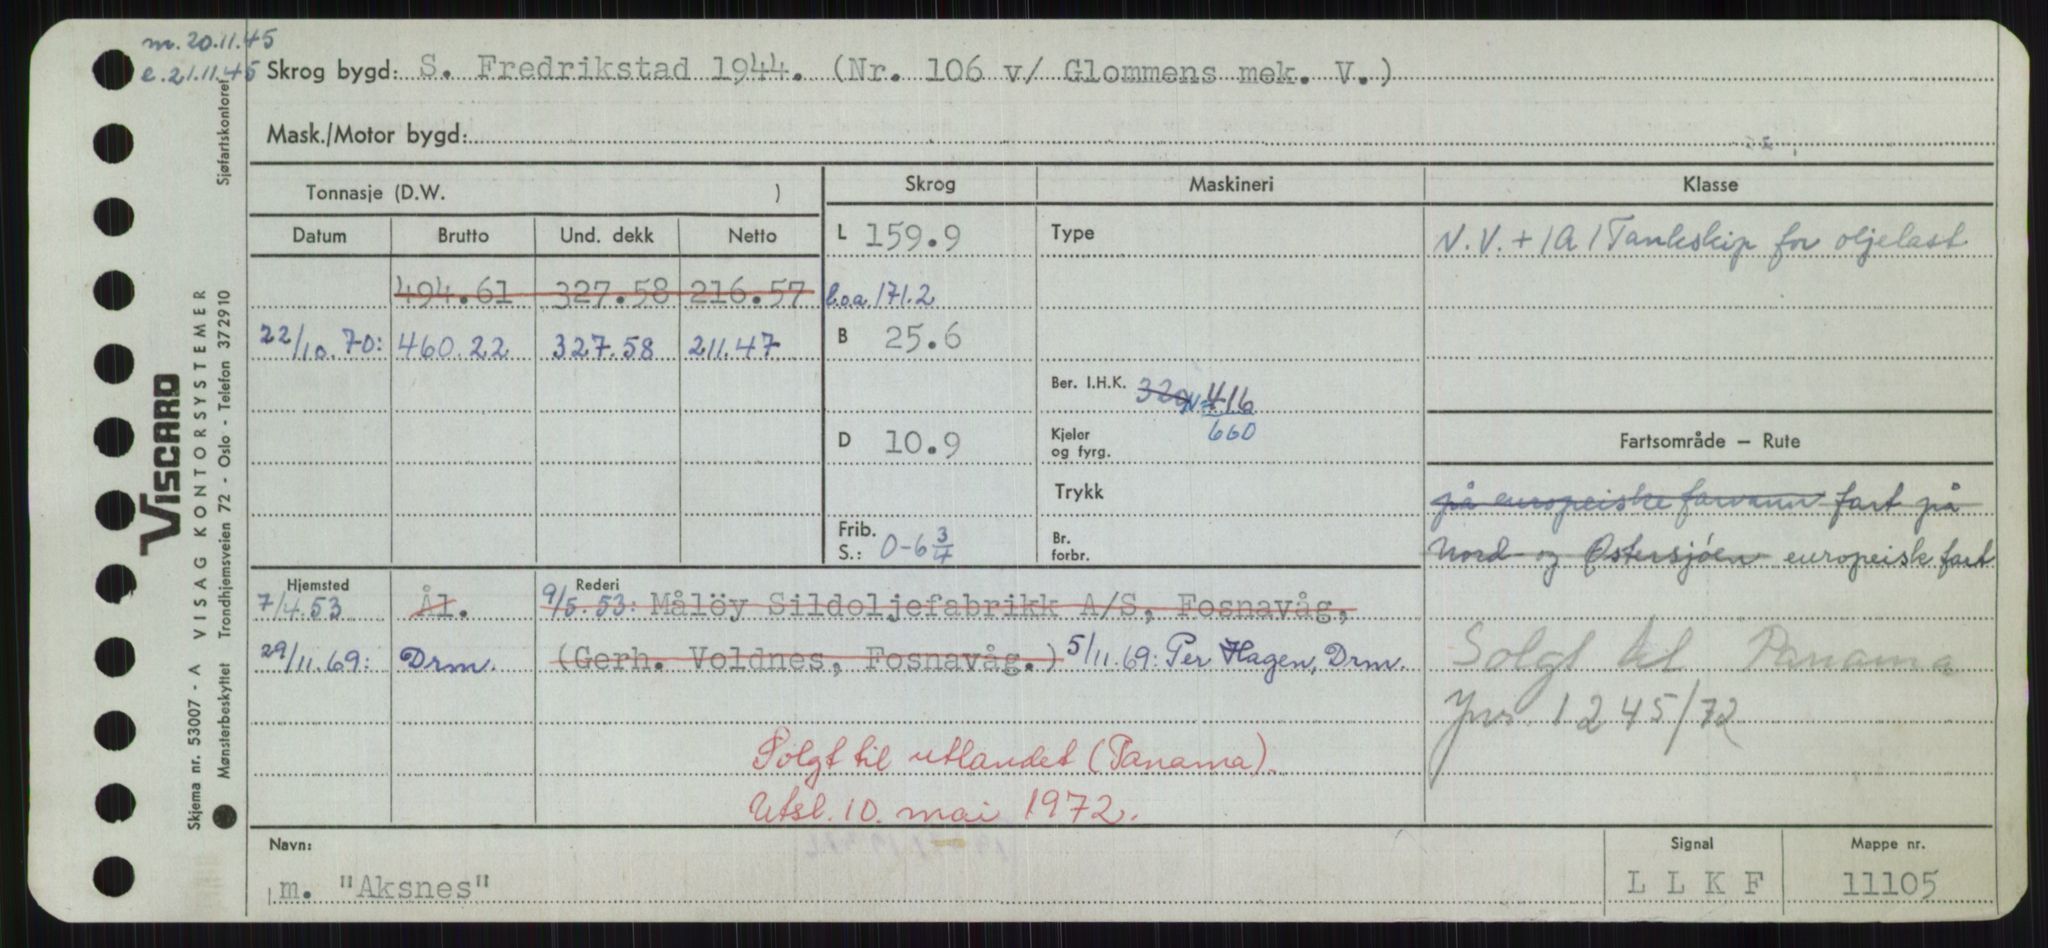 m. 20.11.45
e. 21.11.45
Skrog bygd: S. Fredrikstad 1944. (Nr. 106 v/ Glommens mek. V.)
Mask./Motor bygd:
Tonnasje (D.W. )
Skrog
Maskineri
Klasse
Datum Brutto Und. dekk Netto
L 159.9
Type
N.V. + 1A 1 Tankskip for oljelast
494.61 327.58 216.57
l.o.a. 171.2
22/10.70: 460.22 327.58 211.47
B 25.6
Ber. I.H.K. 320 N= 416
660
D 10.9
Kjeler
og fyrg.
Fartsområde – Rute
Trykk
på europeiske farvann fart på
Frib.
S.: 0-6 3/4
Br.
forbr.
Nord- og Østersjøen europeisk fart
Hjemsted
Rederi
7/4.53 Ål. 9/5.53: Målöy Sildoljefabrikk A/S, Fosnavåg,
29/11.69: Drm. (Gerh. Voldnes, Fosnavåg.) 5/11.69: Per Hagen, Drm.
Solgt til Panama
Jnr. 1245/72
Solgt til utlandet (Panama).
Utsl. 10. mai 1972.
Navn:
m. "Aksnes"
Signal
L L K F
Mappe nr.
11105
Skjema nr. 53007 - A VISAG KONTORSYSTEMER
VISCARD
Mønsterbeskyttet Trondhjemsveien 72 - Oslo - Telefon 372910
Sjøfartskontoret